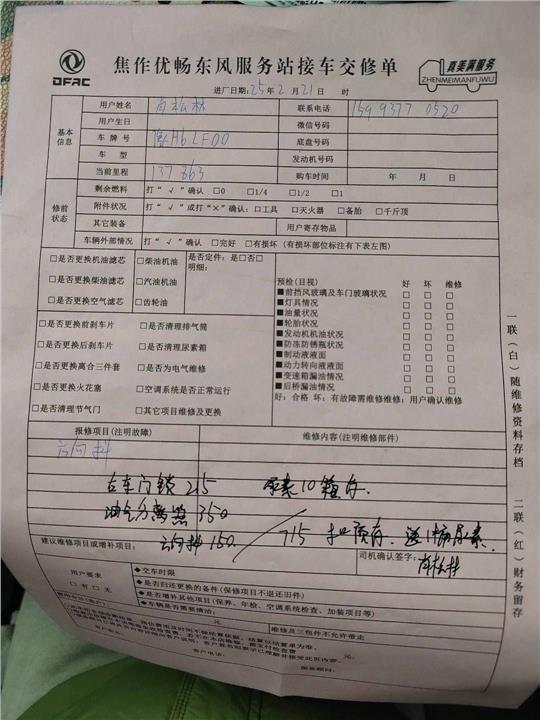 DFAC
焦作优畅东风服务站接车交修单
真美满服务
ZHENMEIMANFUWU
进厂日期:25年2月21日 时
基本信息
用户姓名 联系电话 1599377 0520
用户生日 微信号码
车牌号 底盘号码
车型 发动机号码
当前里程 137863 购车时间 年 月 日
修前状态
剩余燃料 打“√”确认 □0 □1/4 □1/2 □1
附件状况 打“√”或打“×”确认:□工具 □灭火器 □备胎 □千斤顶
其它装备 用户寄存物品
车辆外部情况 打“√”确认 □完好 □有损坏(有损坏部位标注有下表左图)
□是否更换机油滤芯 □柴油机油 是否定件:是□否□
明细:
□是否更换柴油滤芯 □汽油机油
□是否更换空气滤芯 □齿轮油
□是否更换前刹车片 □是否清理排气筒
□是否更换后刹车片 □是否清理尿素箱
□是否更换离合三件套 □是否为电气维修
□是否更换火花塞 □空调系统是否正常运行
□是否清理节气门 □其它项目维修及更换
预检(目视) 好 坏 维修
■前挡风玻璃及车门玻璃状况 □ □ □
■灯具情况 □ □ □
■油量状况 □ □ □
■轮胎状况 □ □ □
■发动机机油状况 □ □ □
■防冻防锈瓶状况 □ □ □
■制动液液面 □ □ □
■动力转向液液面 □ □ □
■变速箱漏油情况 □ □ □
■后桥漏油情况 □ □ □
好:合格 坏:有故障需维修维修:用户确认维修
报修项目(注明故障) 维修内容(注明维修部件)
方向抖
右车门锁 215 尿素10箱存.
油气分离器 350
方向抖 150. 715 扣预存.送1桶尿素.
建议维修项目或增补项目: 司机确认签字:
用户要求
□有 □无
◆交车时限
◆是否归还更换的备件(保修项目不退还旧件)
◆是否增补其他项目(保养、年检、空调系统检查、加装项目等)
◆车辆是否需要清洁:
元 维修及三包件不允许带走
元.
客户电话:
服务顾问:
一联(白)随维修资料存档
二联(红)财务留存